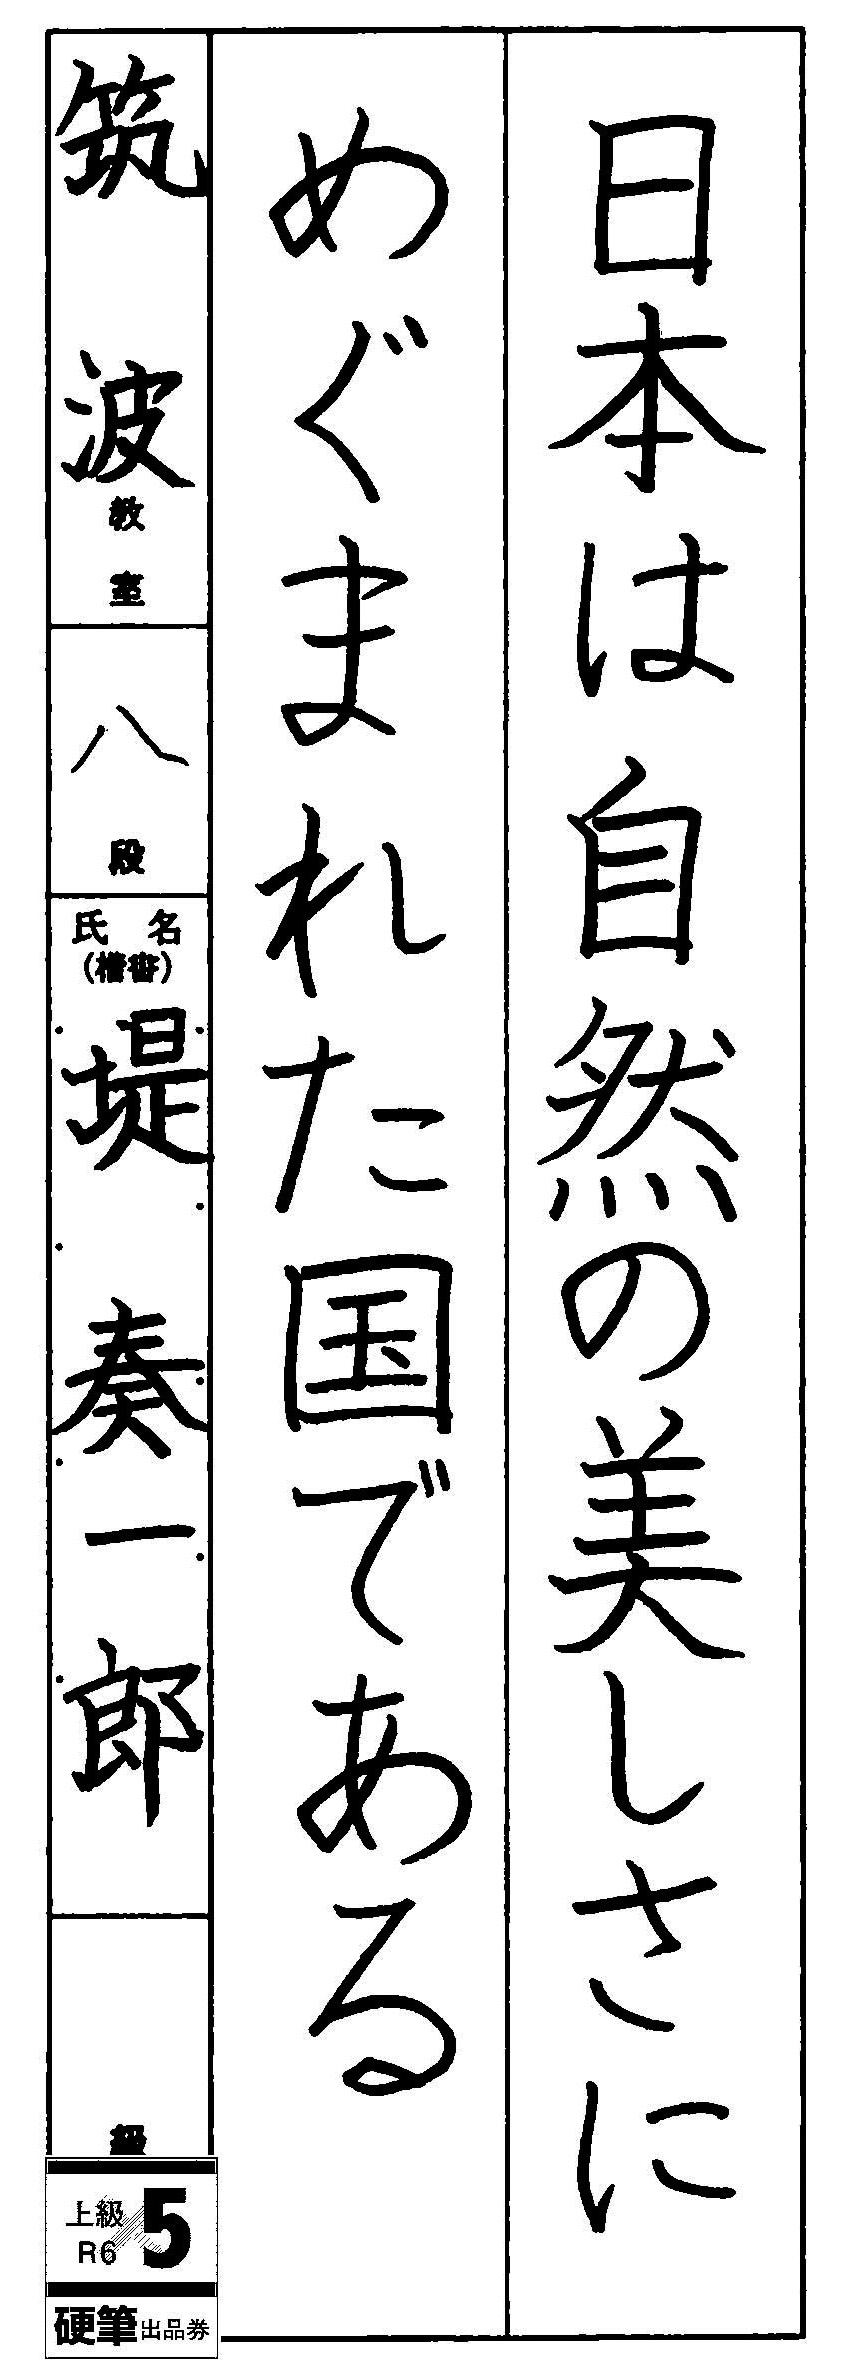 日本は自然の美しさに
めぐまれた国である
筑波教室
八段
氏名
(楷書)
堤奏一郎
級
上級
R6
5
硬筆出品券